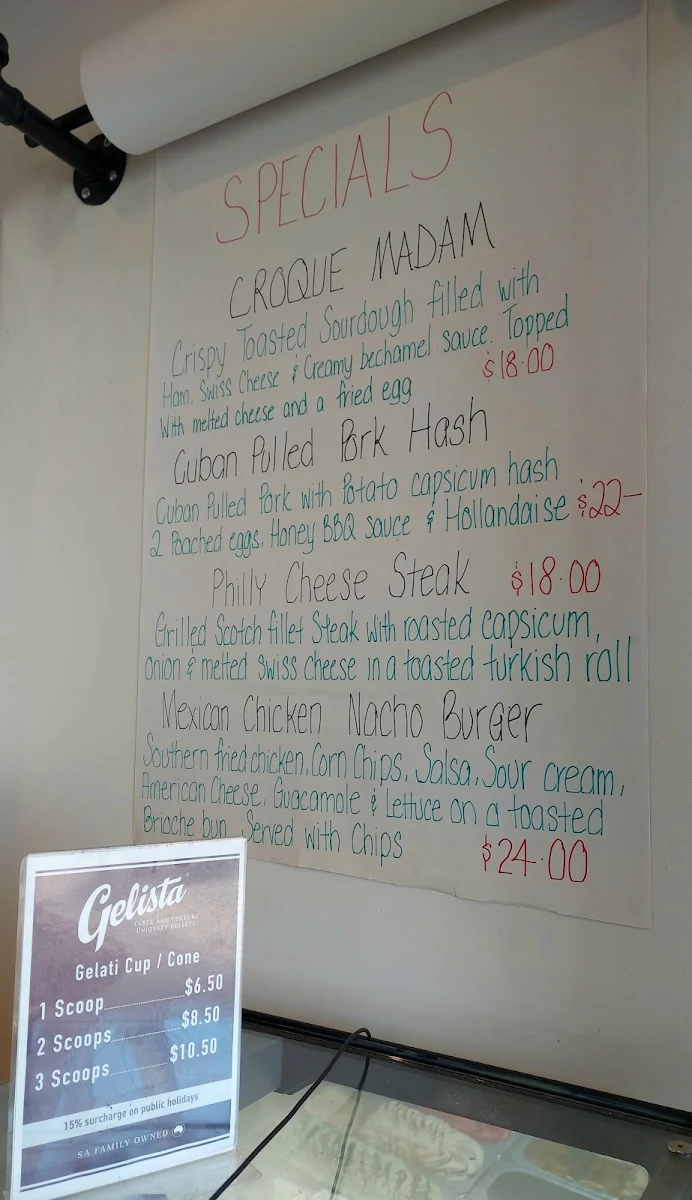 SPECIALS
CROQUE MADAM
Crispy Toasted Sourdough filled with
Ham, Swiss Cheese & Creamy bechamel sauce. Topped
With melted cheese and a fried egg $18.00
Cuban Pulled Pork Hash
Cuban Pulled Pork with Potato capsicum hash
2 Poached eggs, Honey BBQ sauce & Hollandaise $22-
Philly Cheese Steak $18.00
Grilled Scotch fillet Steak with roasted capsicum,
onion & melted swiss cheese in a toasted turkish roll
Mexican Chicken Nacho Burger
Southern fried chicken, Corn Chips, Salsa, Sour cream,
American Cheese, Guacamole & Lettuce on a toasted
Brioche bun. Served with Chips $24.00
Gelista
TASTE AND TEXTURE
UNIQUELY GELISTA
Gelati Cup / Cone
1 Scoop $6.50
2 Scoops $8.50
3 Scoops $10.50
15% surcharge on public holidays
SA FAMILY OWNED